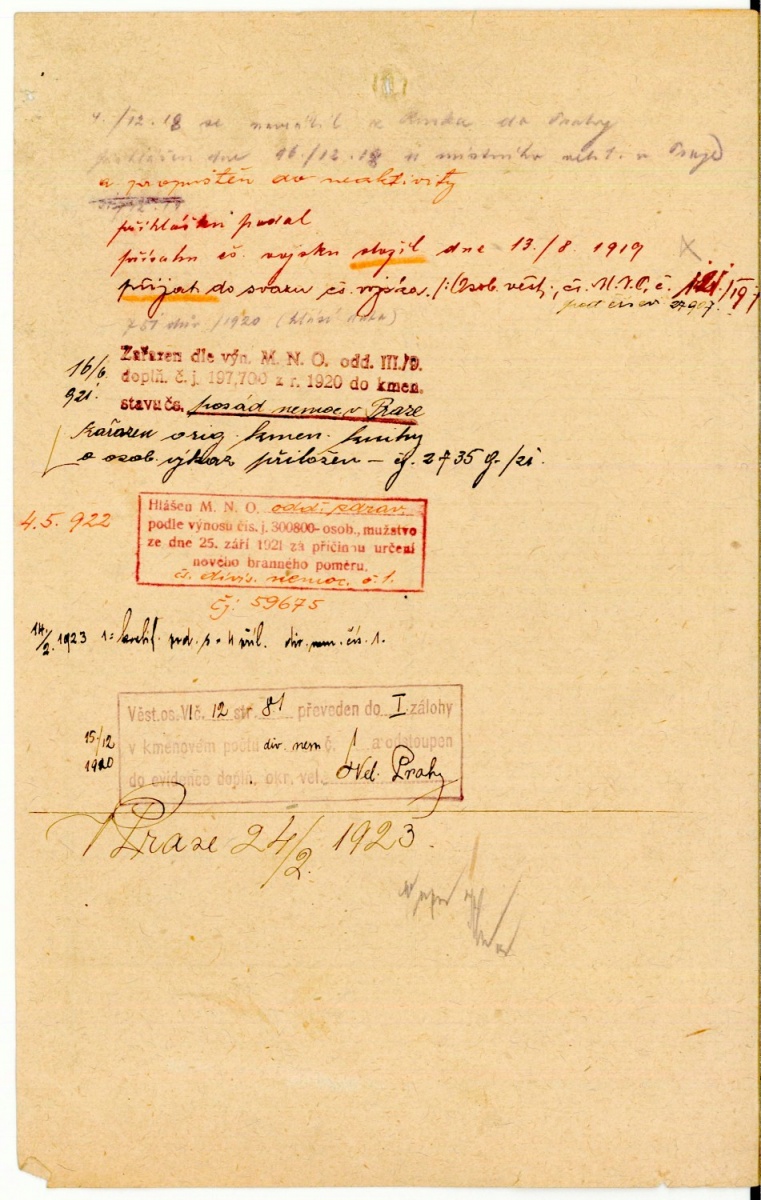 4./12.18 se navrátil z do Prahy
přihlášen dne 16/12.18 u místního velit. v
a propuštěn do neaktivity
přihlášku podal
přísahu čs. vojsku složil dne 13./8. 1919
přijat do svazu čs. vojska /:Osob. věst. čs. M.N.O. č. 121/19
pod čís. 27907
751 /1920 (hlásí
16/6 921. Zařazen dle výn. M. N. O. odd. III./9.
doplň. č. j. 197,700 z r. 1920 do kmen.
stavu čs. posád nemoc. v Praze
Zařazen orig. kmen. knihy
a osob. výkaz přiložen – čj. 2735 /21.
4.5. 922 Hlášen M. N. O. odd. zdrav.
podle výnosu čís. j. 300800- osob., mužstvo
ze dne 25. září 1921 za příčinou určení
nového branného poměru.
čs. divis. nemoc. č. 1.
čj: 59675
14/2. 1923 div. nem. čís. 1.
Věst. os. VI č. 12 str. 81 převeden do I. zálohy
15/12 1920 v kmenovém počtu div. nem č. 1 a odstoupen
do evidence doplň. okr. vel. Vel. Prahy
V Praze 24/2. 1923.